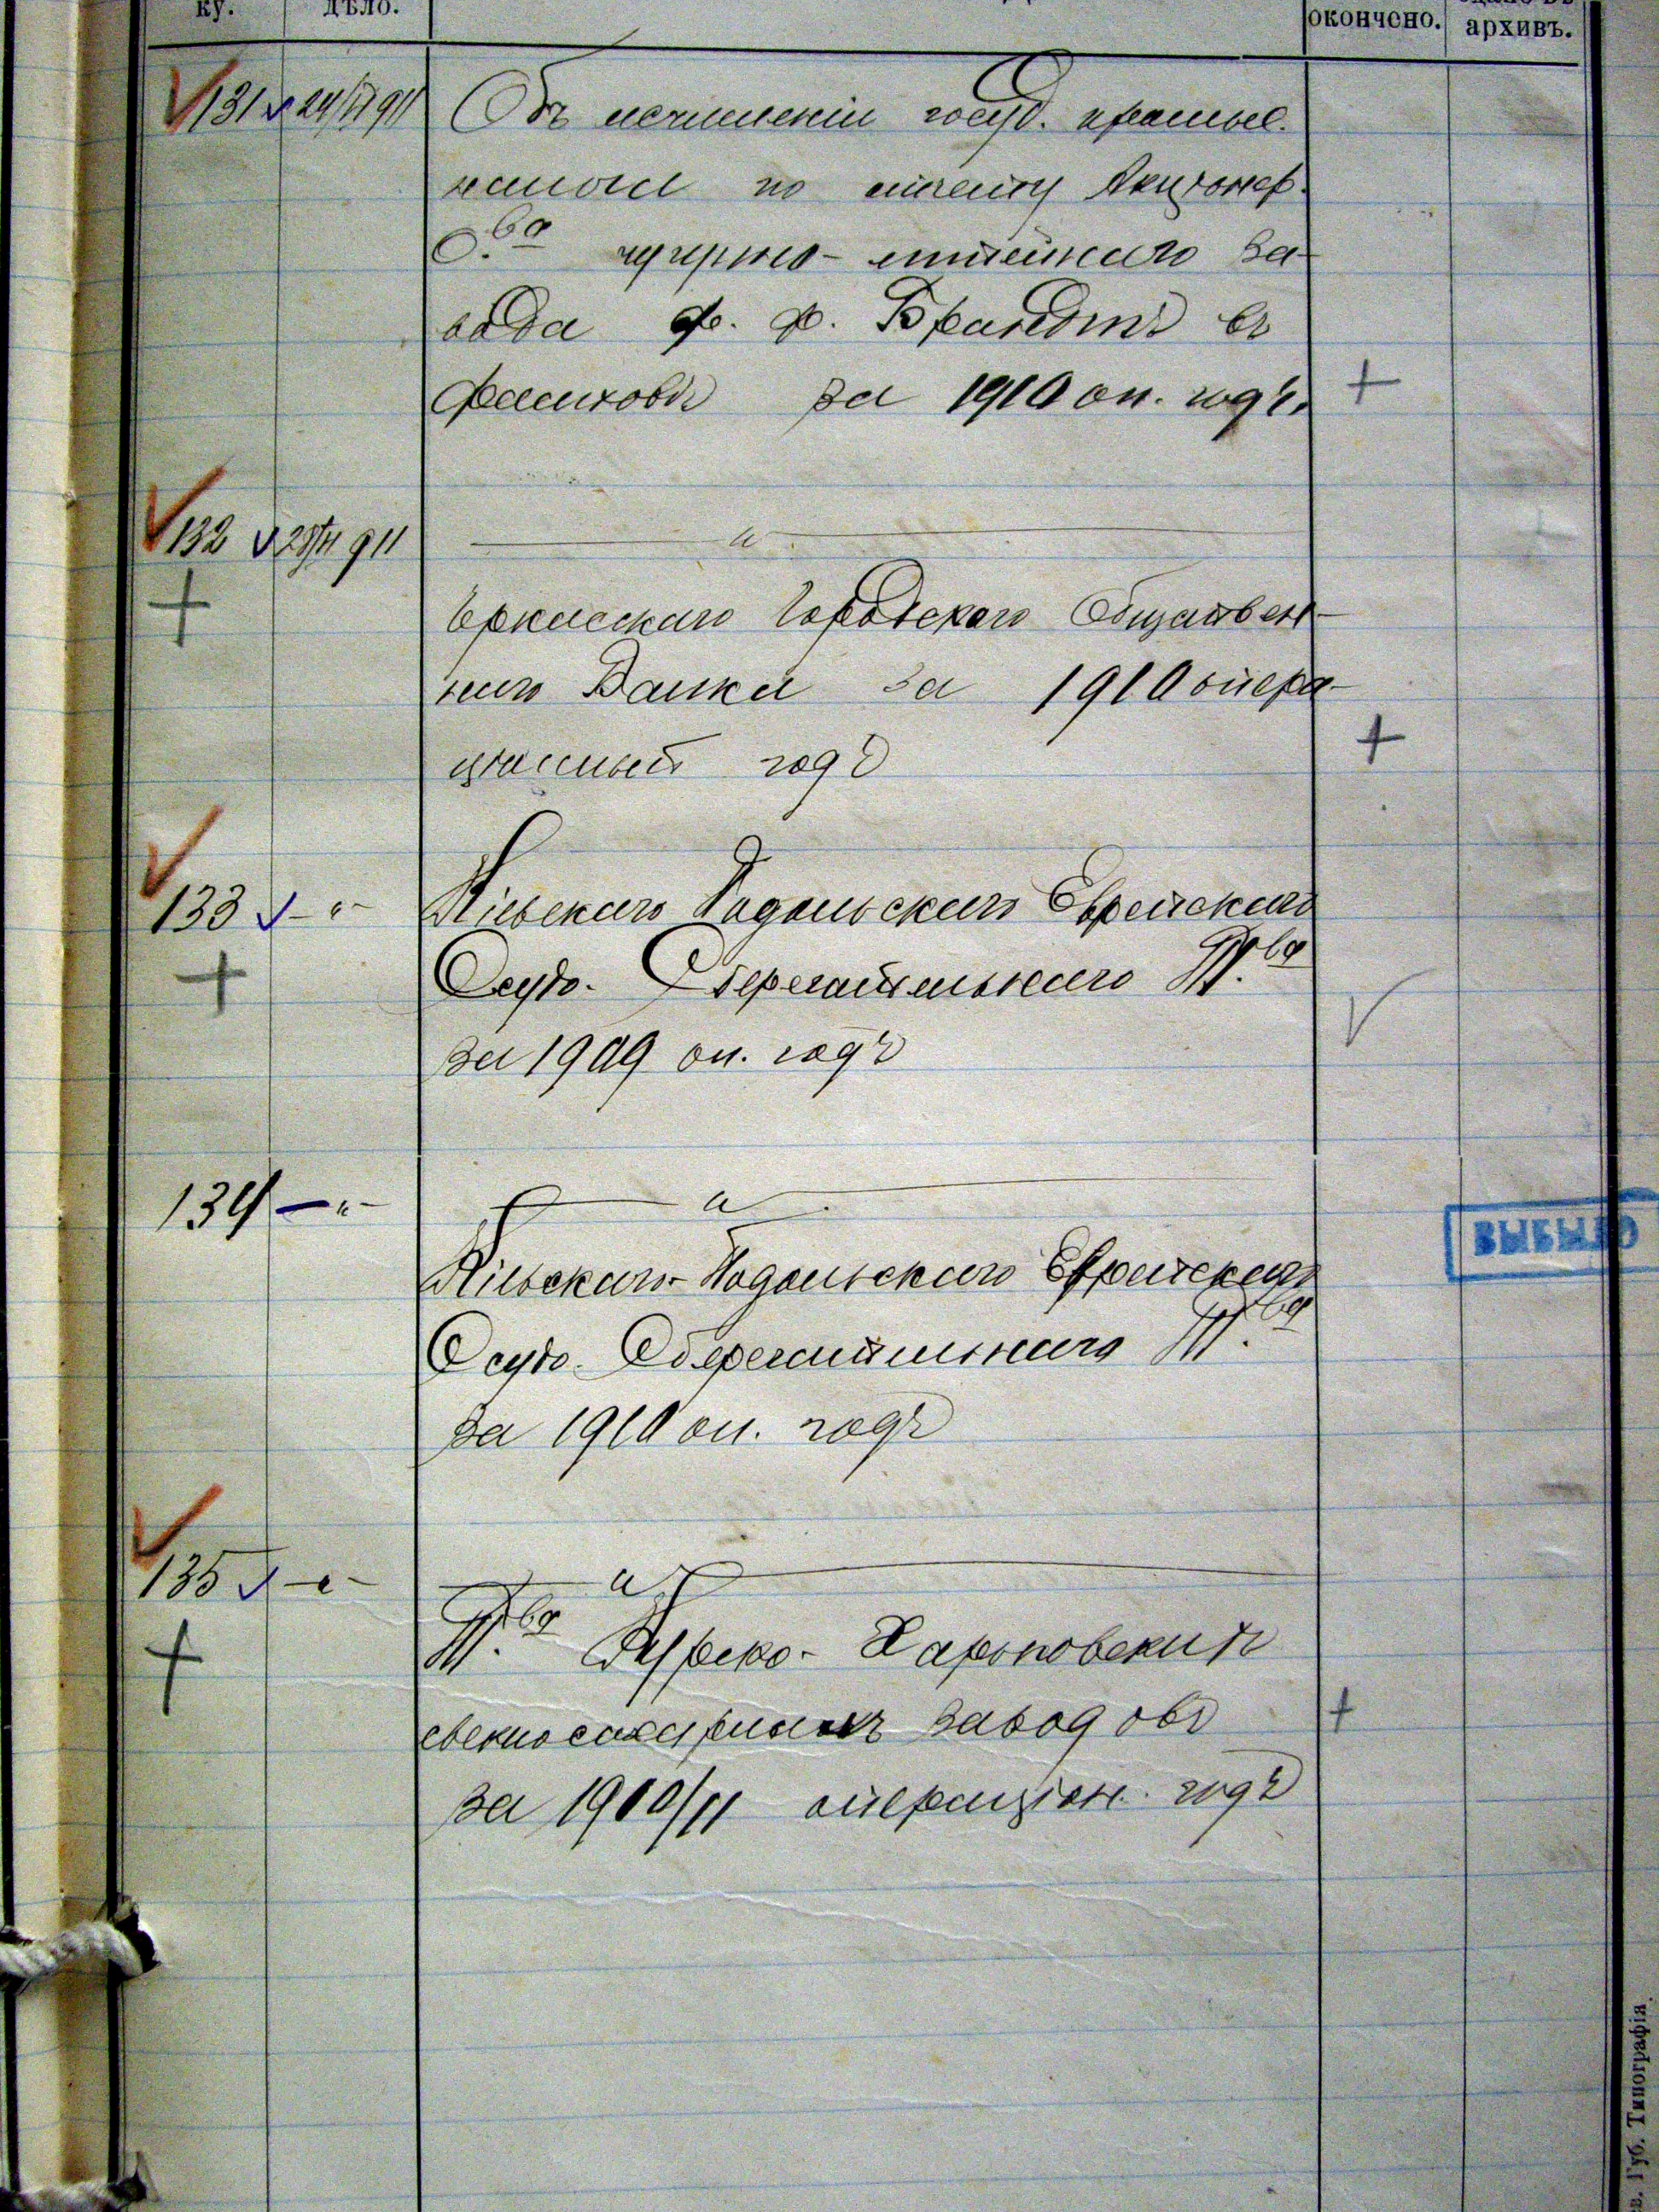 ку.
дѣло.
окончено.
архивъ.
131 24/II 911
Объ исчисленіи госуд. промысл.
налога по отчету Акціонер.
О.ва чугунно-литейнаго за-
вода Ф. Ф. Брандтъ въ
Фастовѣ за 1910 оп. годъ.
132 28/II 911
— " —
Черкасскаго Городского Обществен-
наго Банка за 1910 опера-
ціонный годъ
133 - " -
Кіевскаго Подольскаго Еврейскаго
Ссудо-Сберегательнаго Т.ва
за 1909 оп. годъ
134 - " -
— " —
Кіевскаго-Подольскаго Еврейскаго
Ссудо-Сберегательнаго Т.ва
за 1910 оп. годъ
ВЫБЫЛО
135 - " -
— " —
Т.ва Курско-Харьковскихъ
свеклосахарныхъ заводовъ
за 1910/11 операціон. годъ
Губ. Типографія.